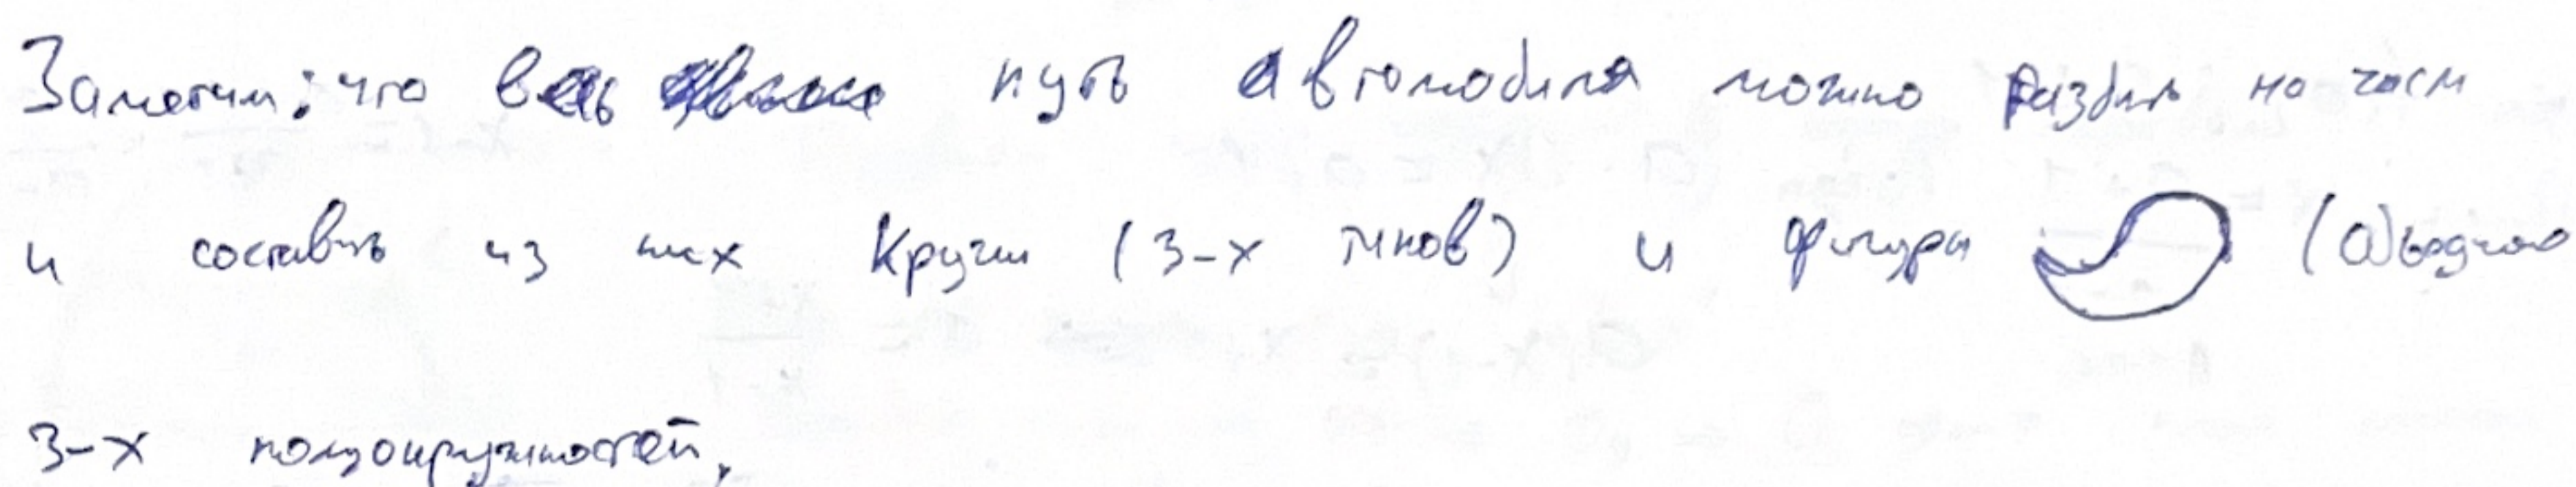 Заметим, что весь путь автомобиля можно разбить на части
и составить из них круги (3-х типов) и фигуры (
3-х полуокружностей,